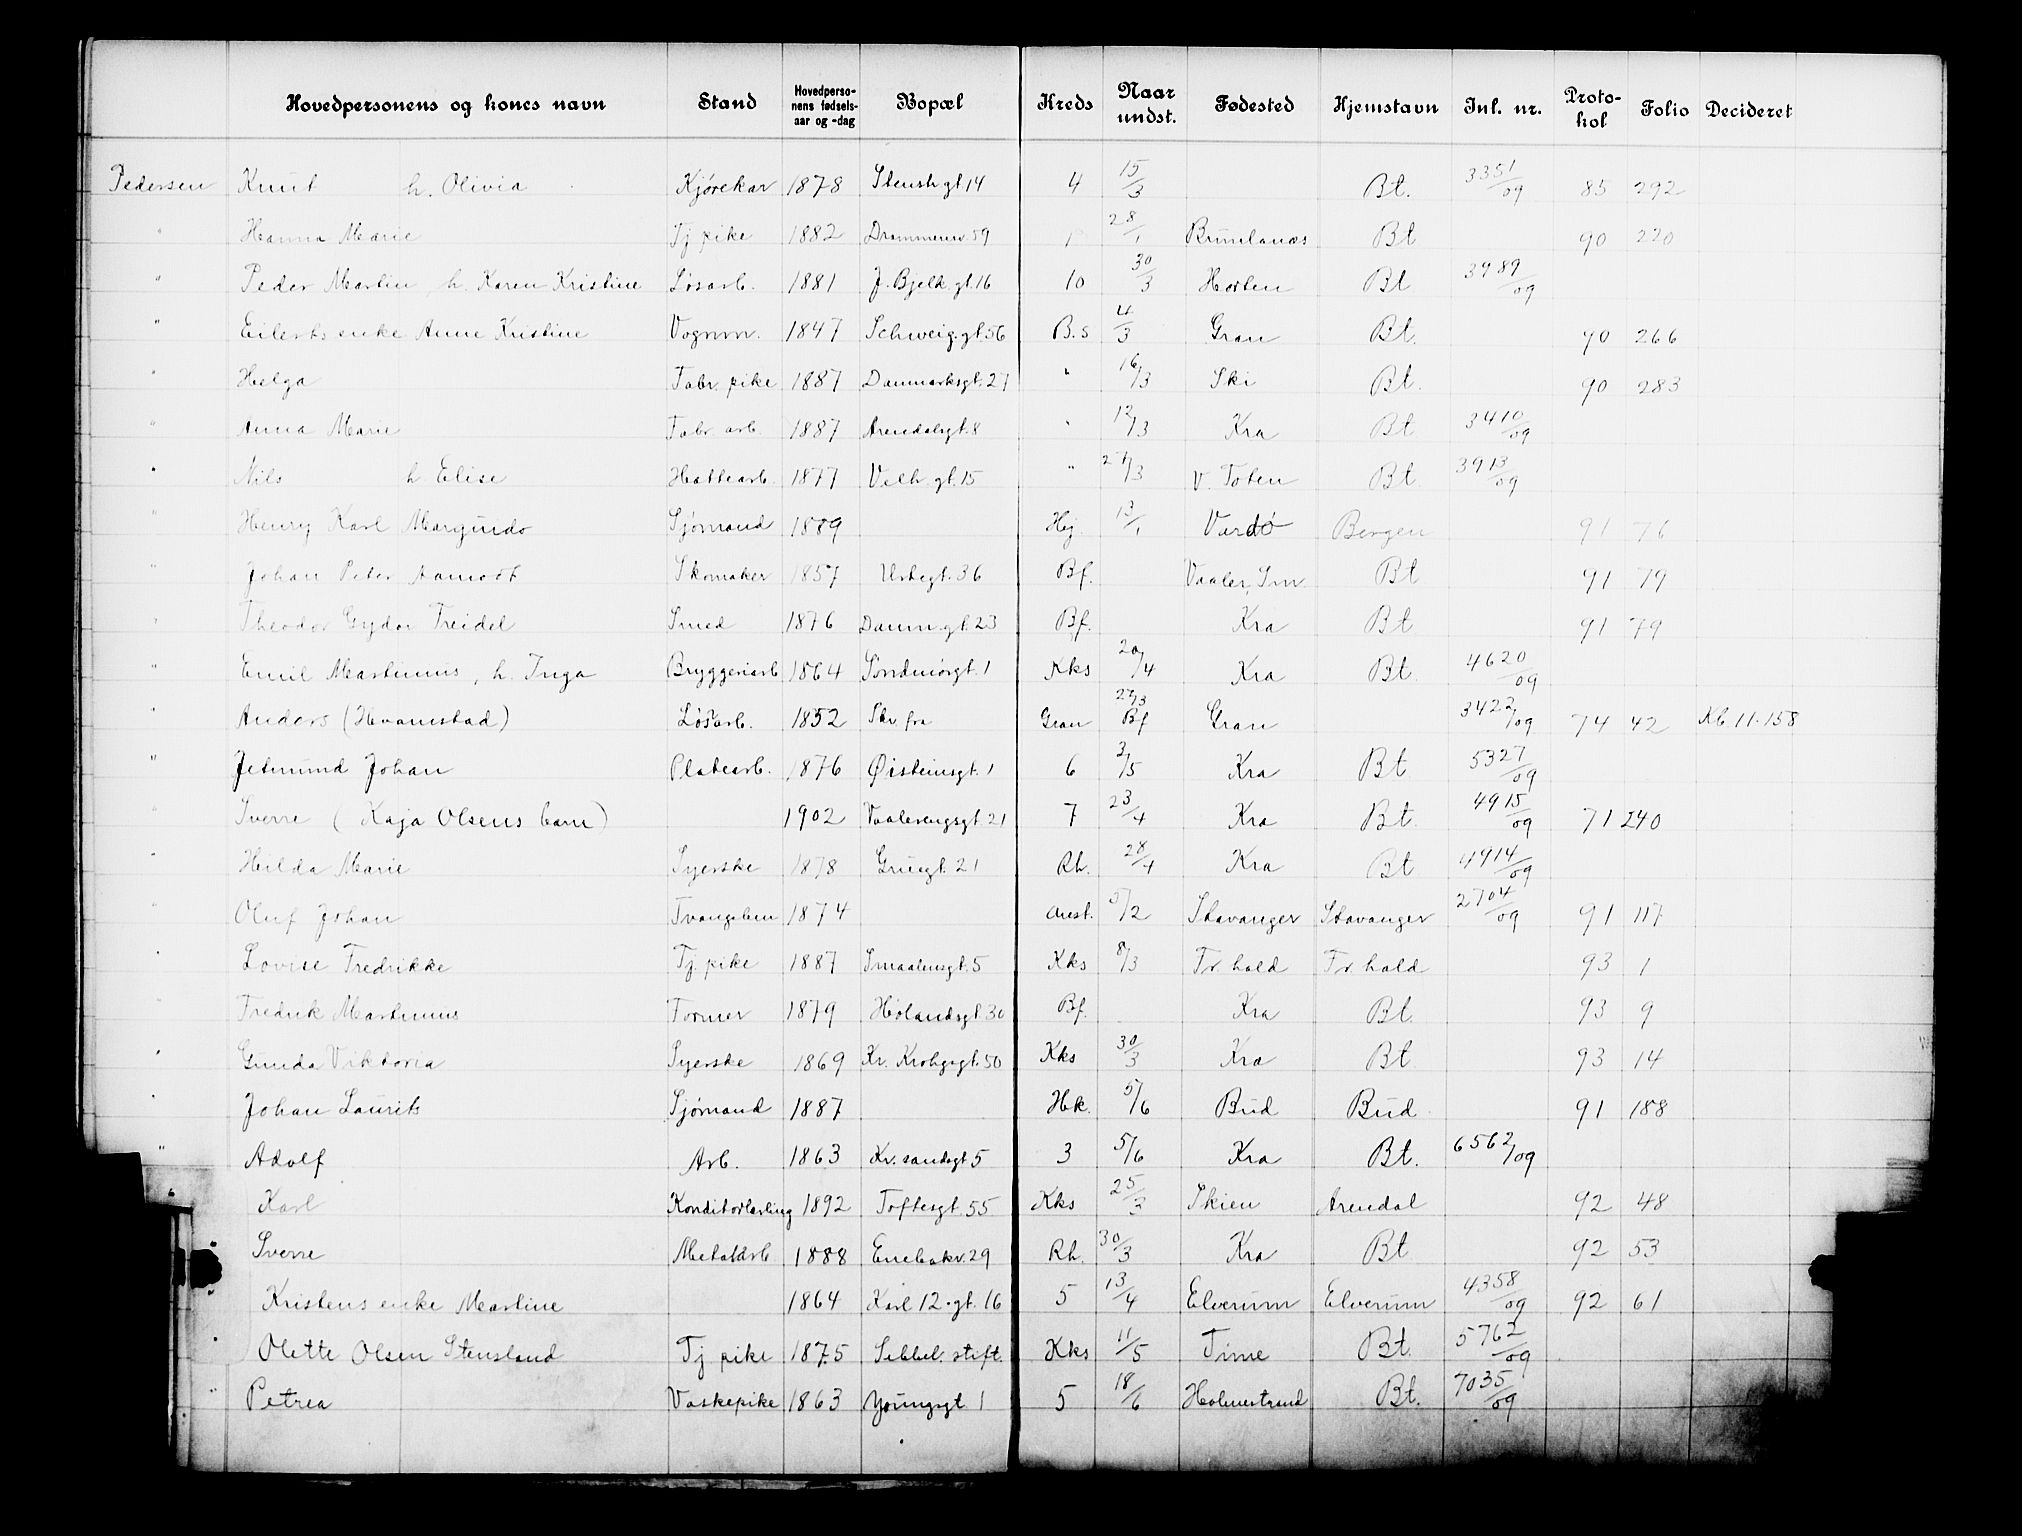 Hovedpersonens og kones navn Stand Hovedperso-nens fødsels-aar og -dag Bopæl Kreds Naar undst. Fødested Hjemstavn Inl. nr. Proto-kol Folio Decideret
Pedersen Knut h. Olivia Kjørekar 1878 Stenstr.gt 14 4 15/3 Bt. 3351/09 85 292
" Hanna Marie Tj pike 1882 Drammensv. 59 28/1 Brunlanæs Bt 90 220
" Peder Martin, h. Karen Kristine Løsarb. 1881 J. Bjelk. gt. 16 10 30/3 Horten Bt 3989/09
" Eilerts enke Anne Kristine Vognm. 1847 Schweig. gt. 56 B.s 4/3 Gran Bt. 90 266
" Helga Fabr. pike 1887 Danmarksgt. 27 " 16/3 Ski Bt. 90 283
" Anna Marie Fabr. arb. 1887 Arendalsgt. 8 " 12/3 Kra Bt 3410/09
" Nils h. Elise Hattearb. 1877 Velh. gt. 15 " 27/3 V. Toten Bt 3913/09
" Henry Karl Margindo Sjømand 1889 Hej. 13/1 Vardö Bergen 91 76
" Johan Peter Aamodt Skomaker 1857 Urtegt. 36 Bf. Vaaler, Sm. Bt 91 79
" Theodor Gydor Treidel Smed 1876 Danm. gt. 23 Bf. Kra Bt 91 79
" Emil Martinius, h. Inga Bryggeriarb 1864 Söndmörsgt. 1 Kks 20/4 Kra Bt. 4620/09
" Anders (Hvamstad) Løsarb. 1852 Skr fra Gran 27/3 Bf Gran 3422/09 74 42 Kb. 11-158
" Jetmund Johan Platearb. 1876 Øisteinsgt. 1 6 3/5 Kra Bt 5327/09
" Sverre (Kaja Olsens barn) 1902 Vaalerengsgt. 21 7 23/4 Kra Bt. 4915/09 71 240
" Hilda Marie Syerske 1878 Grüsgt. 21 Rh. 28/4 Kra Bt 4914/09
" Oluf Johan Tvangslem 1874 Arest. 5/2 Stavanger Stavanger 2704/09 91 117
" Lovise Fredrikke Tj. pike 1887 Smaalensgt. 5 Kks 8/3 Fr. hald Fr. hald 93 1
" Fredrik Martinius Former 1879 Hølandsgt. 30 Bf. Kra Bt. 93 9
" Gunda Viktoria Syerske 1869 Kr. Krohgsgt. 50 Kks 30/3 Kra Bt. 93 14
" Johan Laurits Sjømand 1887 Hk. 5/6 Bud Bud 91 188
" Adolf Arb. 1863 Kr. sandsgt 5 3 5/6 Kra Bt. 6562/09
Karl Konditorlærling 1892 Toftesgt. 55 Kks 25/3 Skien Arendal 92 48
Sverre Metalarb. 1888 Enebakv. 29 Rh. 30/3 Kra Bt 92 53
Kristens enke Martine 1864 Karl 12.gt. 16 5 13/4 Elverum Elverum 4358/09 92 61
Olette Olsen Stensland Tj pike 1875 Sebbel. stift. Kks 11/5 Time Bt. 5762/09
" Petrea Vaskepike 1863 Youngsgt 1 5 18/6 Holmestrand Bt. 7035/09